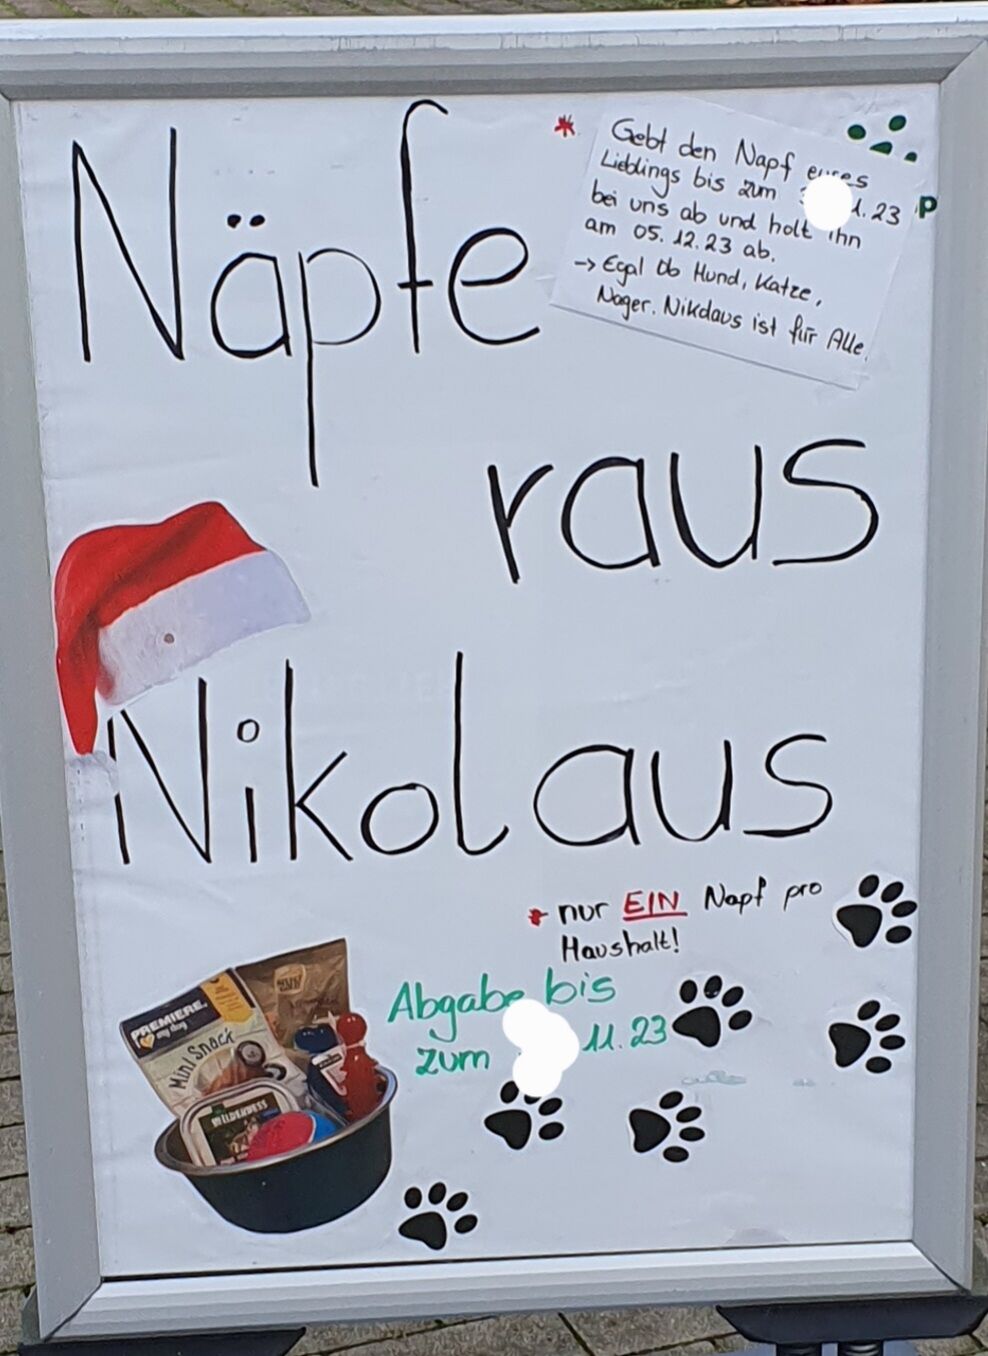 Näpfe
* Gebt den Napf eures
Lieblings bis zum 1.23
bei uns ab und holt ihn
am 05.12.23 ab.
→ Egal Ob Hund, Katze,
Nager. Nikolaus ist für Alle.
p
raus
Nikolaus
* nur EIN Napf pro
Haushalt!
Abgabe bis
zum 11.23
PREMIERE
my dog
Mini Snack
WILDERNESS